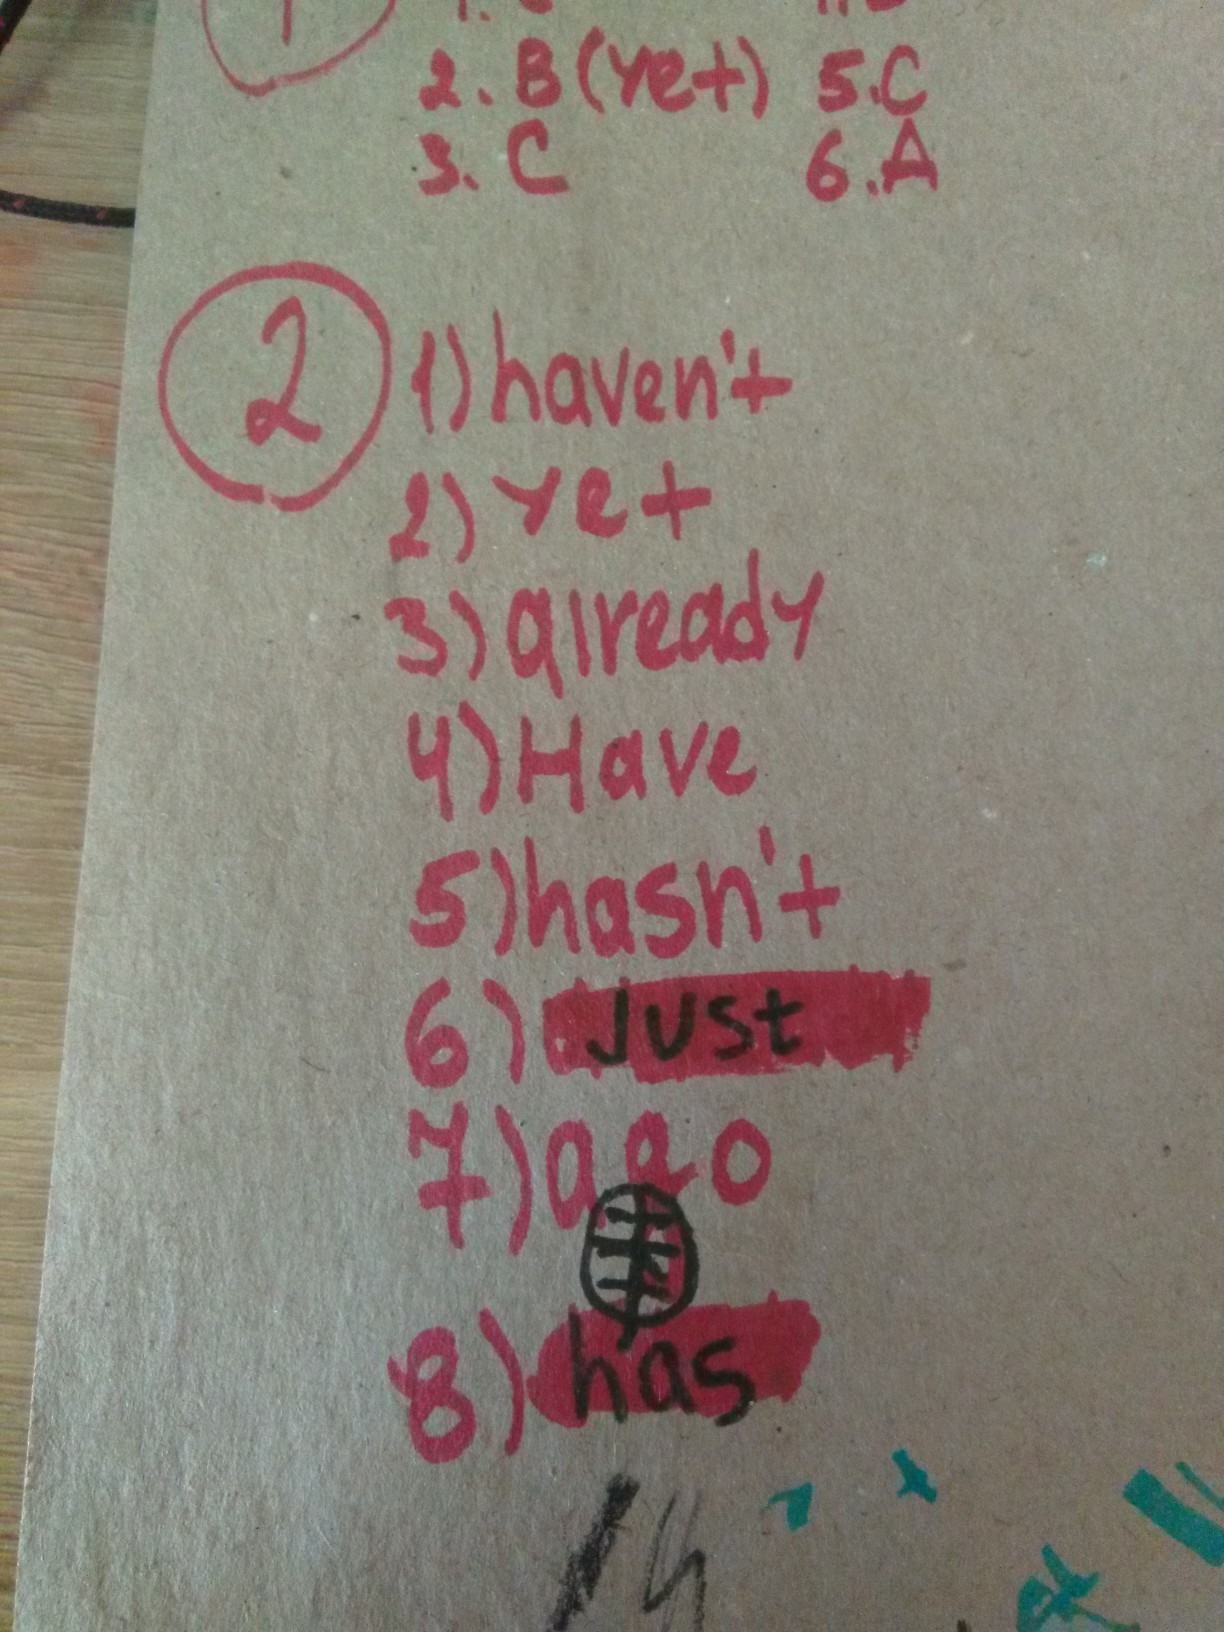 1
2. B (yet) 5.C
3. C 6.A
2
1) haven't
2) yet
3) already
4) Have
5) hasn't
6) Just
7) ago
8) has